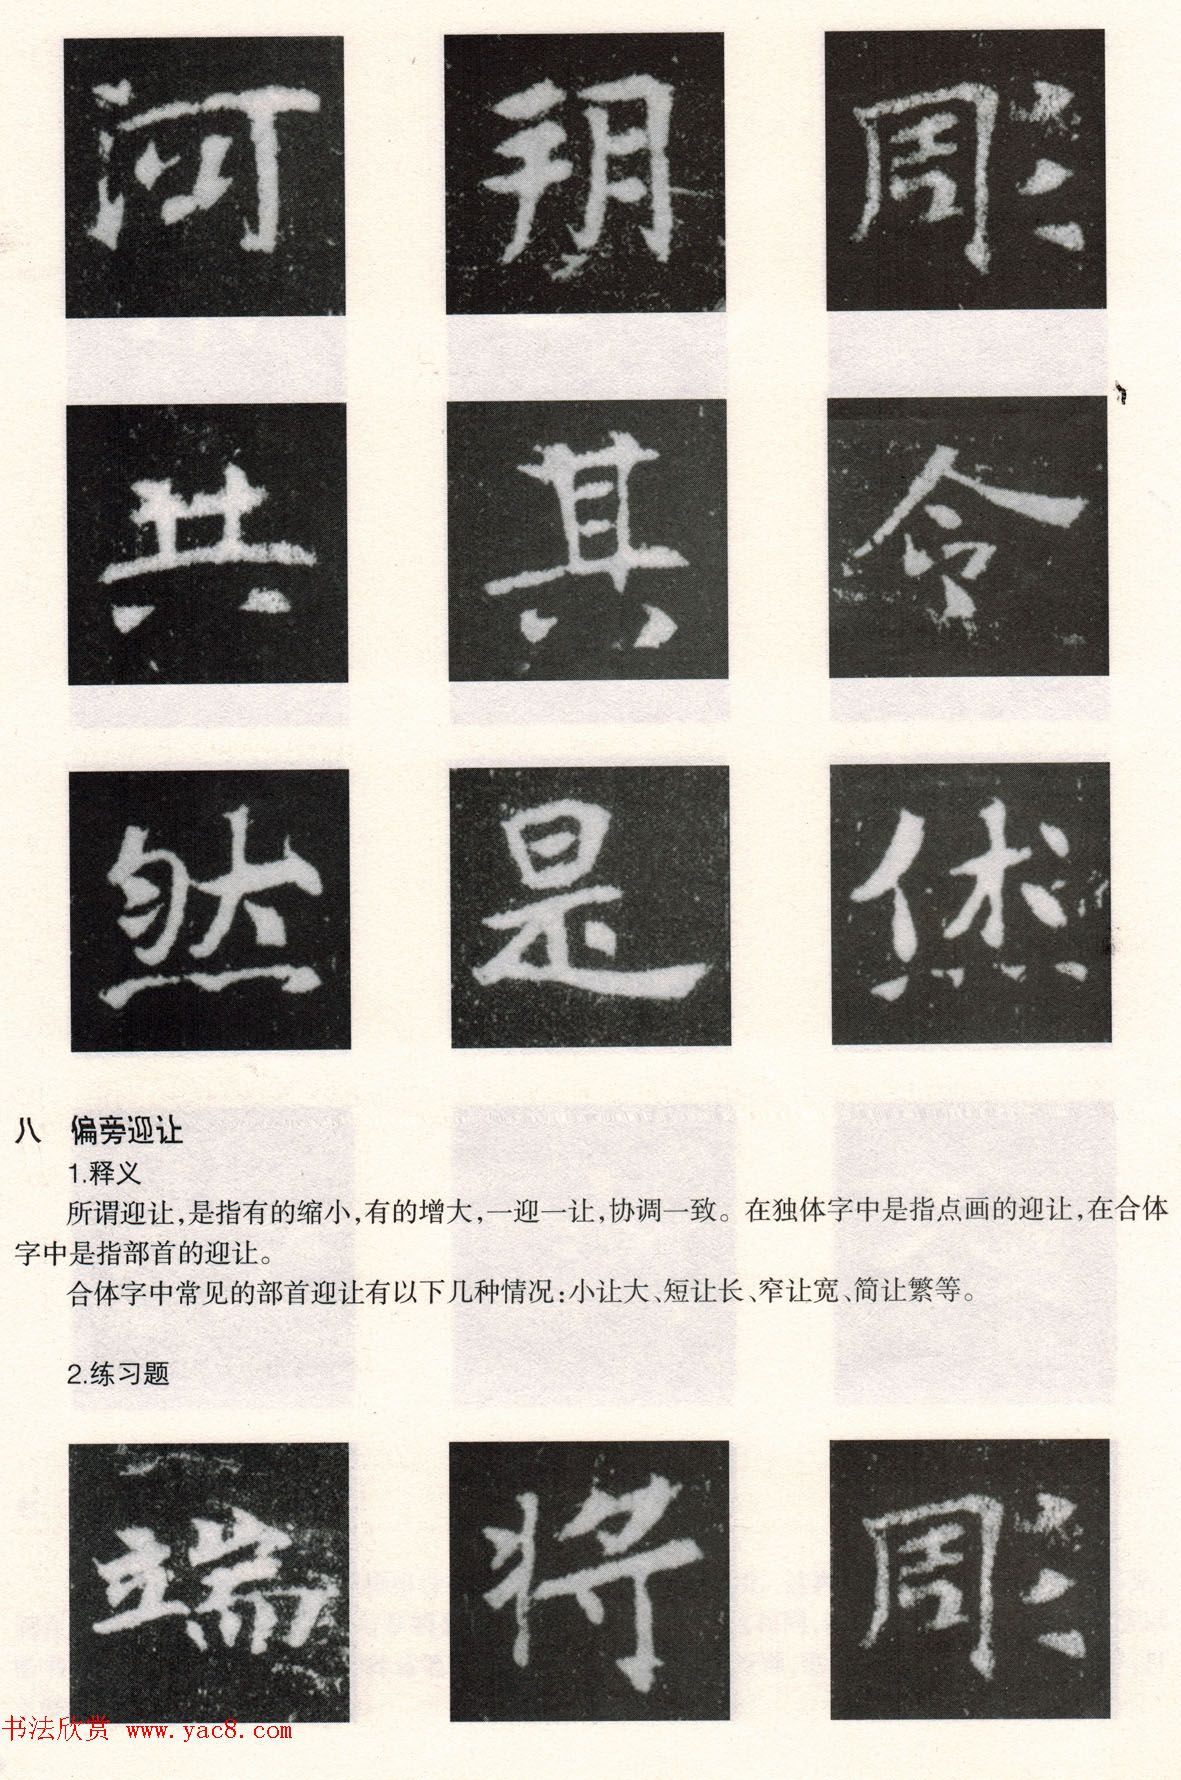 河 朔 彫
共 其 令
然 是 烋
八 偏旁迎让
1.释义
所谓迎让,是指有的缩小,有的增大,一迎一让,协调一致。在独体字中是指点画的迎让,在合体
字中是指部首的迎让。
合体字中常见的部首迎让有以下几种情况:小让大、短让长、窄让宽、简让繁等。
2.练习题
端 将 彫
书法欣赏 www.yac8.com